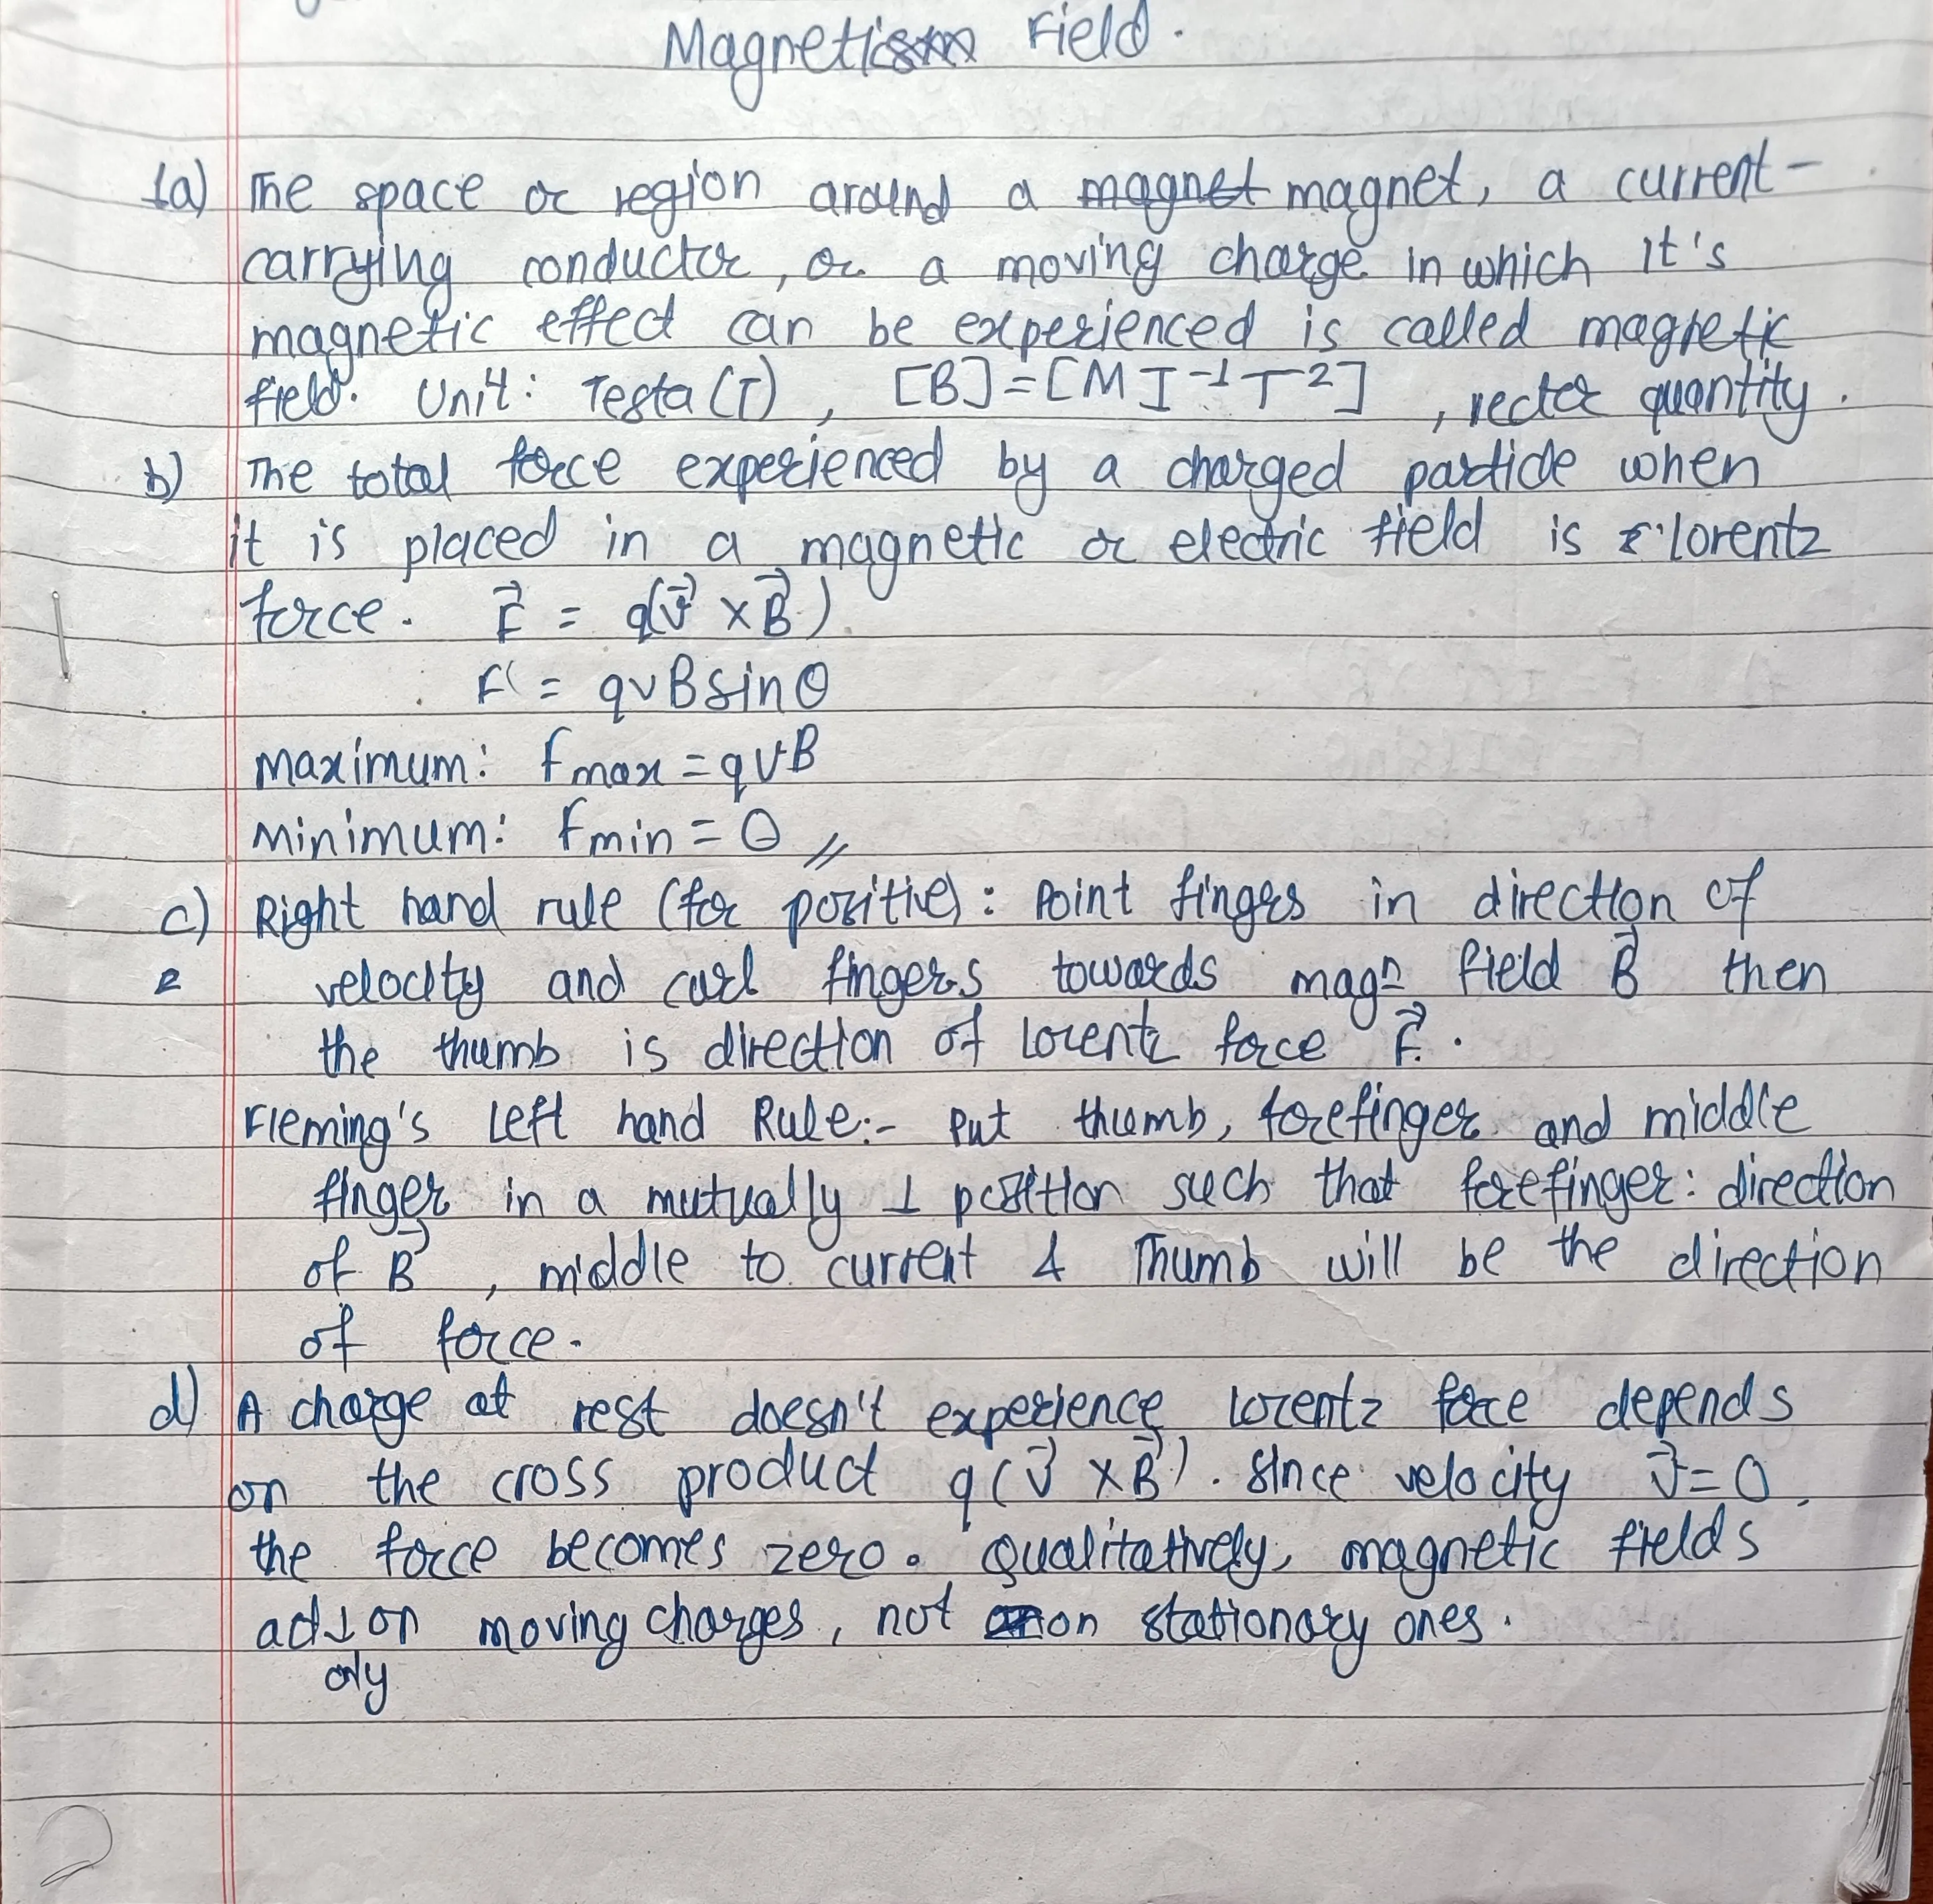 Magnetic Field.
1a) The space or region around a magnet magnet, a current-
carrying conductor, or a moving charge in which it's
magnetic effect can be experienced is called magnetic
field. Unit: Tesla (T), [B]=[M I⁻¹ T⁻²], vector quantity.
b) The total force experienced by a charged particle when
it is placed in a magnetic or electric field is lorentz
force. F⃗ = q(v⃗ × B⃗)
F = qvBsinθ
Maximum: Fmax = qvB
Minimum: Fmin = 0 //
c) Right hand rule (for positive): Point fingers in direction of
velocity and curl fingers towards magn field B⃗ then
the thumb is direction of lorentz force F⃗.
Fleming's Left hand Rule:- Put thumb, forefinger and middle
finger in a mutually ⊥ position such that forefinger: direction
of B⃗, middle to current & Thumb will be the direction
of force.
d) A charge at rest doesn't experience lorentz force depends
on the cross product q(v⃗ × B⃗). Since velocity v⃗=0,
the force becomes zero. Qualitatively, magnetic fields
act on moving charges, not on stationary ones.
only